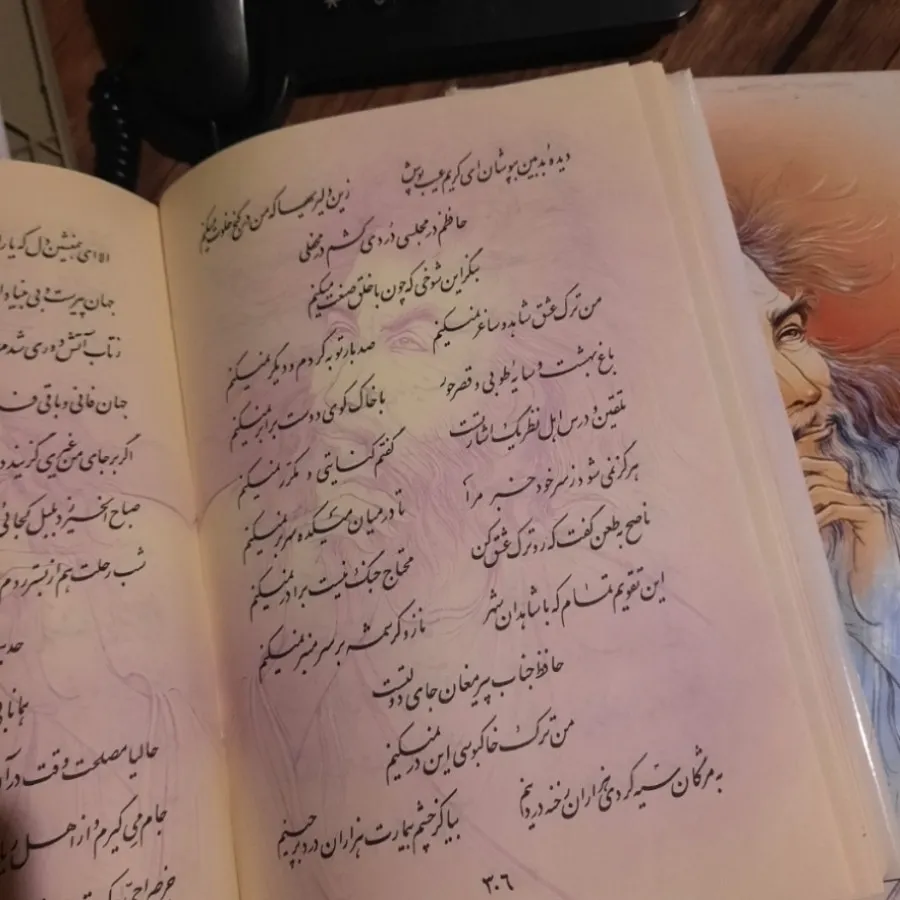 دیدهٔ بدبین بپوشان ای کریم عیب پوش
زین دلیریها که من در کنج خلوت میکنم
حافظم در مجلسی دردی کشم در محفلی
بنگر این شوخی که چون با خلق صنعت میکنم
من ترک عشق شاهد و ساغر نمیکنم
صد بار توبه کردم و دیگر نمیکنم
باغ بهشت و سایهٔ طوبی و قصر حور
با خاک کوی دوست برابر نمیکنم
تلقین و درس اهل نظر یک اشارتست
گفتم کنایتی و مکرر نمیکنم
هرگز نمی شود ز سر خود خبر مرا
تا در میان میکده سر بر نمیکنم
ناصح به طعن گفت که رو ترک عشق کن
محتاج جنگ نیست برادر نمیکنم
این تقویم تمام که با شاهدان شهر
ناز و کرشمه بر سر منبر نمیکنم
حافظ جناب پیر مغان جای دولتست
من ترک خاکبوسی این در نمیکنم
به مژگان سیه کردی هزاران رخنه در دینم
بیا کز چشم بیمارت هزاران درد برچینم
۳۰۶
الا ای همنشین دل که یارا
جهان پیرست و بی بنیاد
ز تاب آتش دوری شدم
جهان فانی و باقی
اگر بر جای من غیری گزیند
صباح الخیر زد بلبل کجائی
شب رحلت هم از بستر روم
حدیث
همانا
حالیا مصلحت وقت در آن
جام می گیرم و از اهل ریا